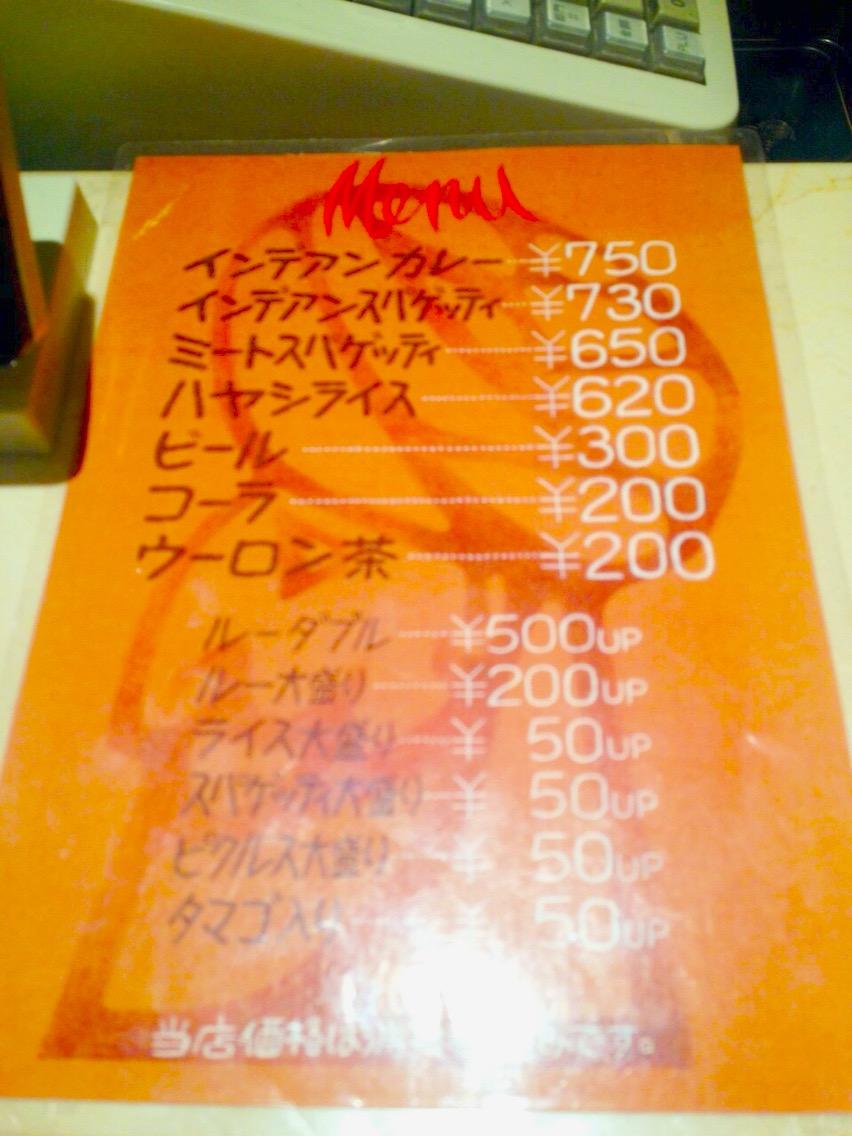 Menu
インデアンカレー ¥750
インデアンスパゲッティ ¥730
ミートスパゲッティ ¥650
ハヤシライス ¥620
ビール ¥300
コーラ ¥200
ウーロン茶 ¥200
ルーダブル ¥500UP
ルー大盛り ¥200UP
ライス大盛り ¥50UP
スパゲッティ大盛り ¥50UP
ピクルス大盛り ¥50UP
タマゴ入り ¥50UP
当店価格は です。